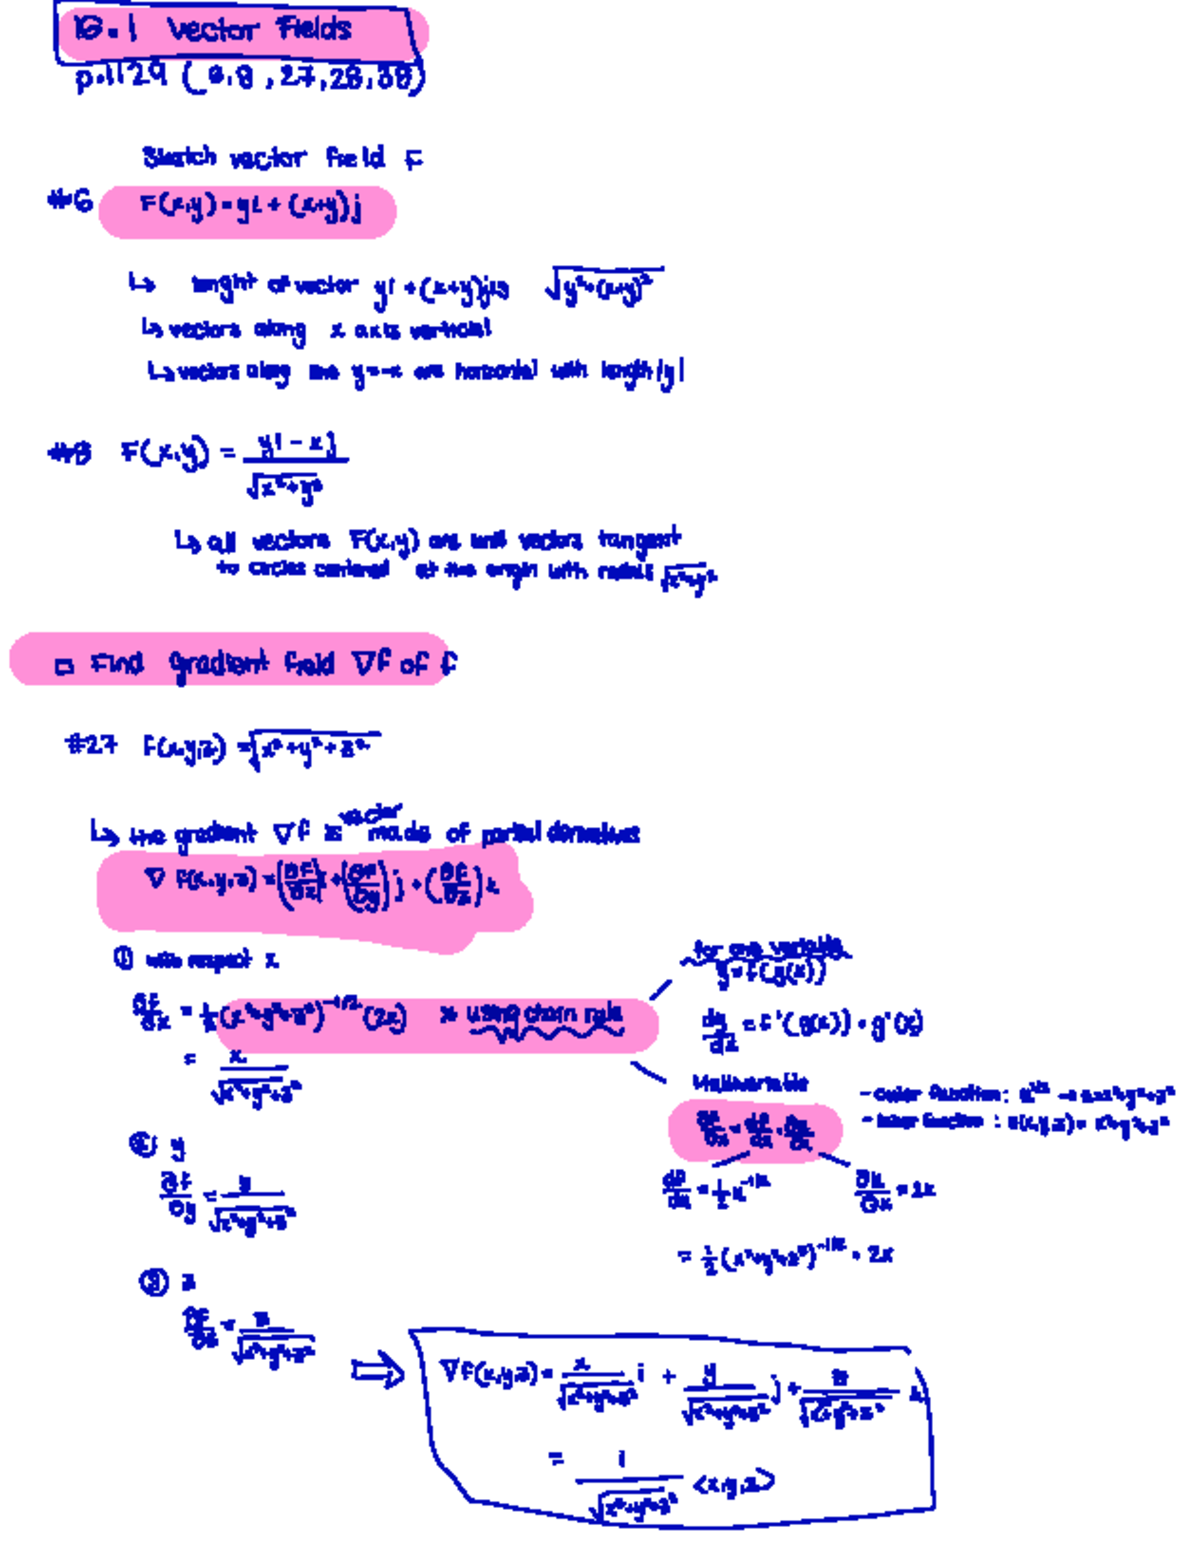 16.1 Vector Fields
p.1129 (6,8,27,28,38)
Sketch vector field F
#6 F(x,y)=yi+(x+y)j
↳ lenght of vector yi+(x+y)j is √(y²+(x+y)²)
↳ vectors along x axis vertical
↳ vectors along line y=-x are horizontal with length |y|
#8 F(x,y) = (yi-xj)/√(x²+y²)
↳ all vectors F(x,y) are unit vectors tangent
to circles centered at the origin with radius √(x²+y²)
□ Find gradient field ∇f of f
#27 f(x,y,z) = √(x²+y²+z²)
↳ the gradient ∇f is vector made of partial derivatives
∇f(x,y,z) = (∂f/∂x)i + (∂f/∂y)j + (∂f/∂z)k
① with respect x
∂f/∂x = ½(x²+y²+z²)^(-1/2) (2x) * using chain rule
= x/√(x²+y²+z²)
for one variable
y=f(g(x))
dy/dx = f'(g(x)) · g'(x)
Multivariable
∂f/∂x = df/du · ∂u/∂x
- outer function: u^(1/2) → u=x²+y²+z²
- inner function: u(x,y,z)= x²+y²+z²
df/du = ½u^(-1/2) ∂u/∂x = 2x
= ½(x²+y²+z²)^(-1/2) · 2x
② y
∂f/∂y = y/√(x²+y²+z²)
③ z
∂f/∂z = z/√(x²+y²+z²)
⇒ ∇f(x,y,z) = x/√(x²+y²+z²) i + y/√(x²+y²+z²) j + z/√(x²+y²+z²) k
= 1/√(x²+y²+z²) <x,y,z>